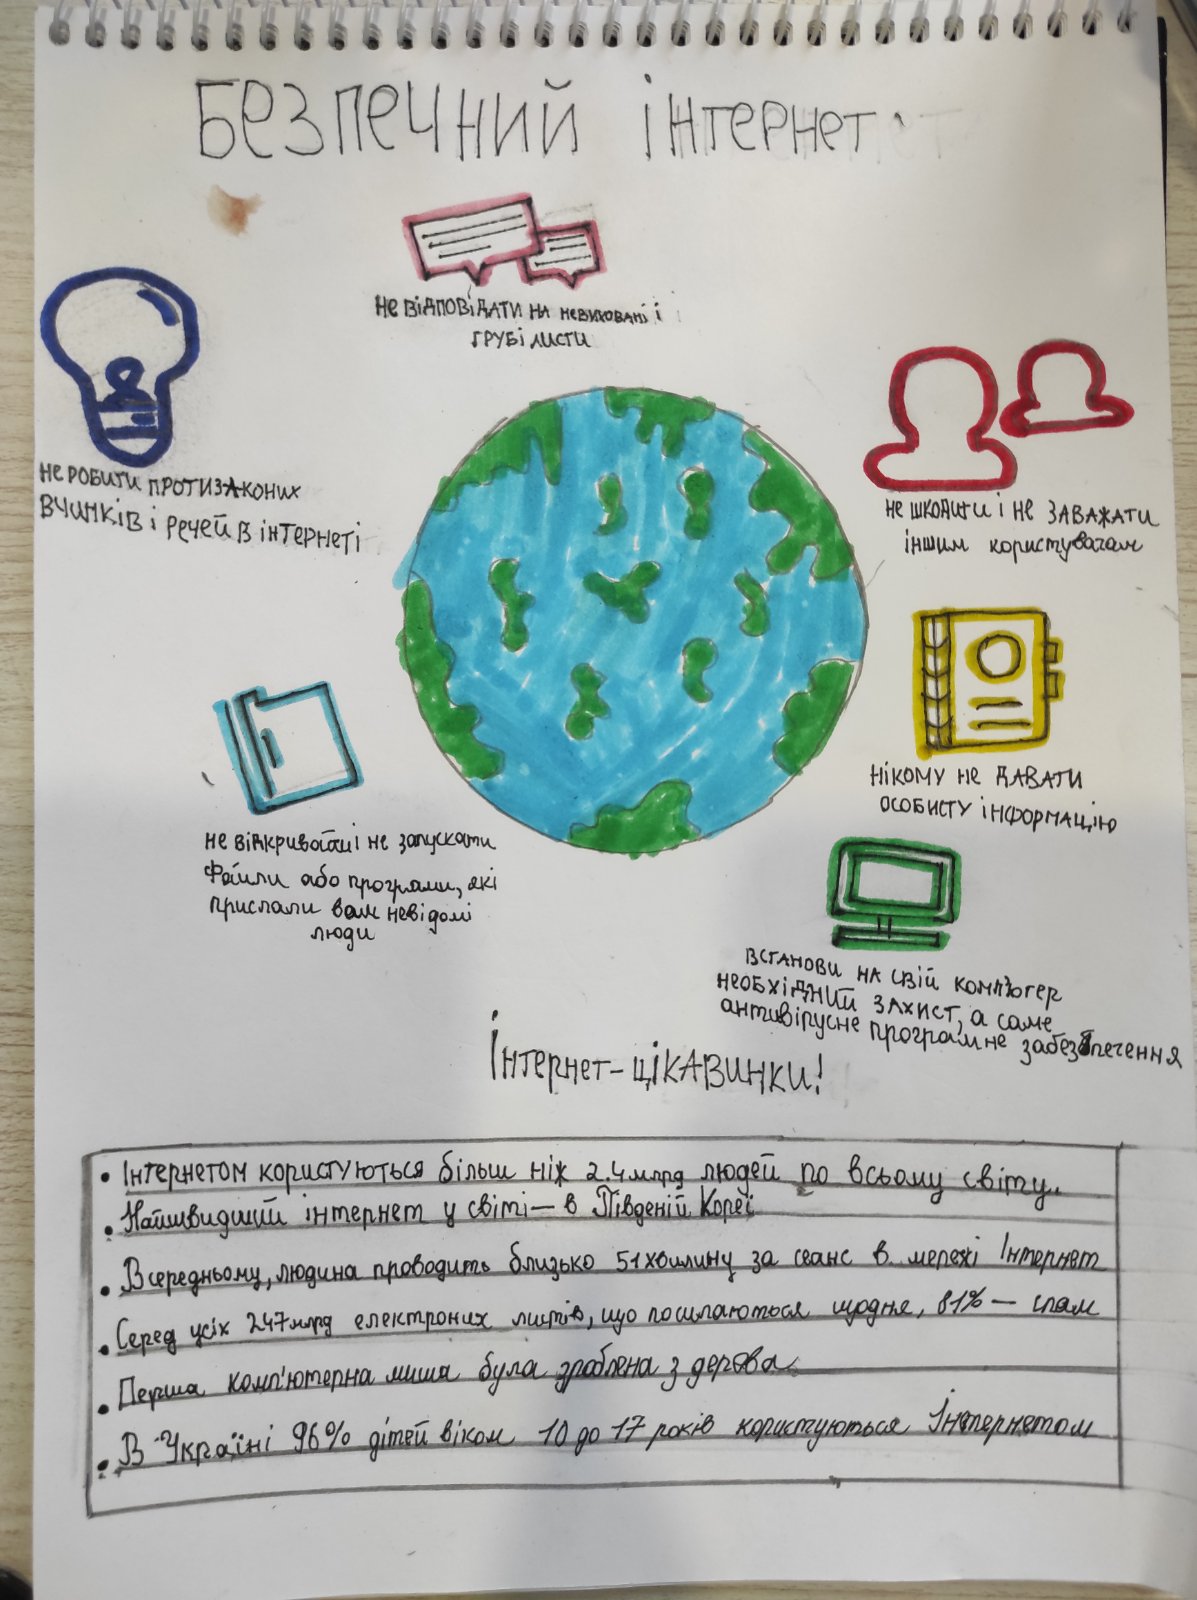 Безпечний інтернет
не відповідати на невиховані і
грубі листи
не робити протизаконих
вчинків і речей в інтернеті
не шкодити і не заважати
іншим користувачам
нікому не давати
особисту інформацію
не відкривати і не запускати
файли або програми, які
прислали вам невідомі
люди
встанови на свій комп'ютер
необхідний захист, а саме
антивірусне програмне забезпечення
Інтернет-цікавинки!
• Інтернетом користуються більш ніж 2.4 млрд людей по всьому світу..
• Найшвидший інтернет у світі — в Південій Кореї
• Всередньому, людина проводить близько 51 хвилину за сеанс в мережі Інтернет
• Серед усіх 247 млрд електроних листів, що посилаються щодня, 81% — спам
• Перша комп'ютерна миша була зроблена з дерева
• В Україні 96% дітей віком 10 до 17 років користуються Інтернетом